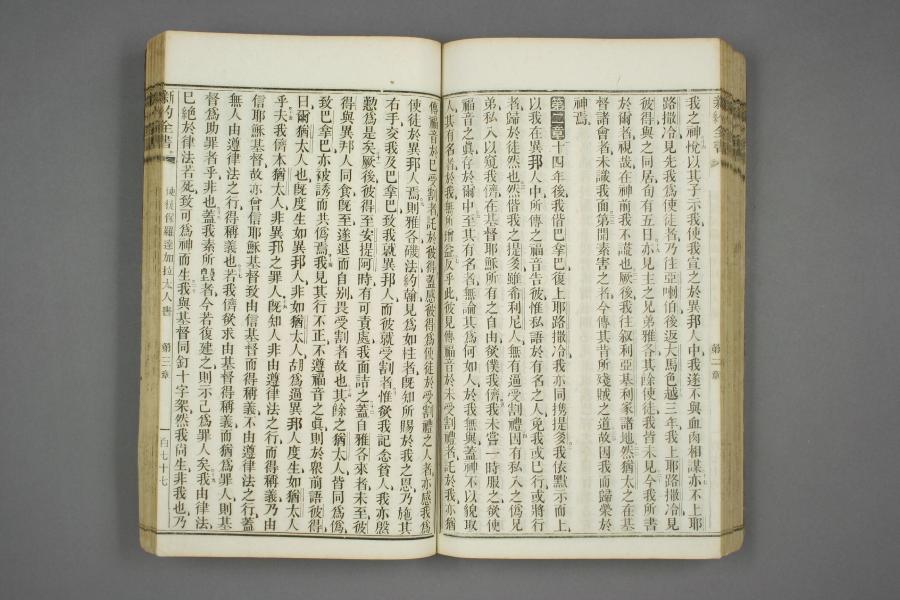 我之神悅以其子示我使我宣之於異邦人中我遂不與血肉相謀亦不上耶
路撒冷見先我爲使徒者乃往亞喇伯後返大馬色越三年我上耶路撒冷見
彼得與之同居旬有五日亦見主之兄弟雅各其餘使徒我皆未見今我所書
於爾者視哉在神前我不謊也厥後我往叙利亞基利家諸地然猶太之在基
督諸會者未識我面第聞素害之者今傳其昔所殘賊之道故因我而歸榮於
神焉
第二章十四年後我偕巴拿巴復上耶路撒冷我亦同携提多我依默示而上
以我在異邦人中所傳之福音告彼惟私語於有名之人免我或已行或將行
者歸於徒然也然偕我之提多雖希利尼人無有逼受割禮因有私入之僞兄
弟私入以窺我儕在基督耶穌所有之自由欲僕我儕我未嘗一時服之欲使
福音之眞存於爾中至其有名者無論其爲何如人於我無與蓋神不以貌取
人其有名者於我無所增益反乎此彼見傳福音於未受割禮者託於我亦猶
傳福音於已受割者託於彼得蓋感彼得爲使徒於受割禮之人者亦感我爲
使徒於異邦人焉則雅各磯法約翰見爲如柱者旣知所賜於我之恩乃施其
右手交我及巴拿巴致我就異邦人而彼就受割者惟欲我記念貧人我亦殷
懃爲是矣厥後彼得至安提阿時有可責處我面詰之蓋自雅各來者未至彼
得與異邦人同食旣至遂退而自別畏受割者故也其餘之猶太人皆同爲僞
致巴拿巴亦被誘而共僞焉我見其行不正不遵福音之眞則於衆前語彼得
曰爾猶太人也旣度生如異邦人非如猶太人胡爲逼異邦人度生如猶太人
乎夫我儕本猶太人非異邦之罪人旣知人非由遵律法之行而得稱義乃由
信耶穌基督故亦曾信耶穌基督致由信基督而得稱義不由遵律法之行蓋
無人由遵律法之行得稱義也若我儕欲求由基督得稱義而猶爲罪人則基
督爲助罪者乎非也蓋我素所毀者今若復建之則示己爲罪人矣我由律法
已絕於律法若死致可爲神而生我與基督同釘十字架然我尙生非我也乃
新約全書
使徒保羅達加拉太人書
第二章
一百七十七
新約全書
第二章